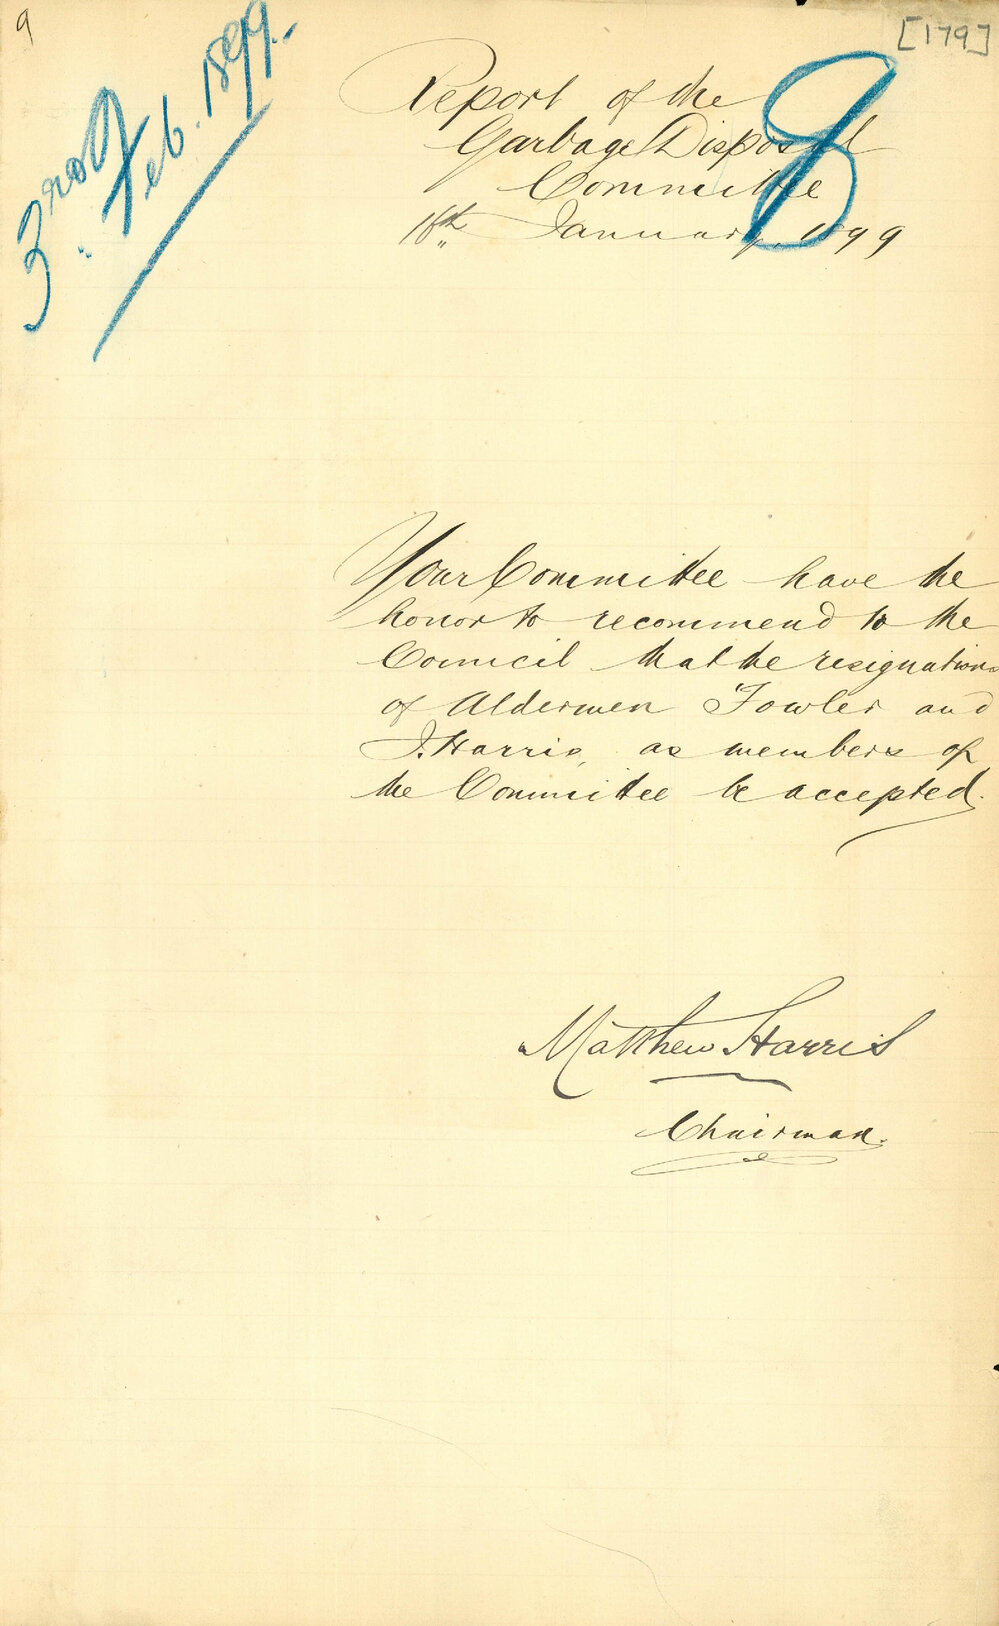 9
[179]
3rd of
Feb. 1899.
8
Report of the
Garbage Disposal
Committee
18th January, 1899
Your Committee have the
honor to recommend to the
Council that the resignations
of Aldermen Fowler and
J. Harris, as members of
the Committee be accepted.
Matthew Harris
Chairman.